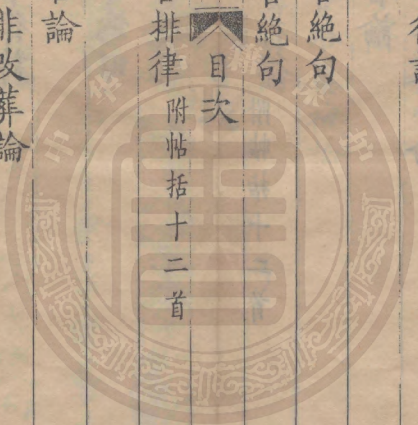 絶句
絶句
目次
排律附帖括十二首
論
非改葬論